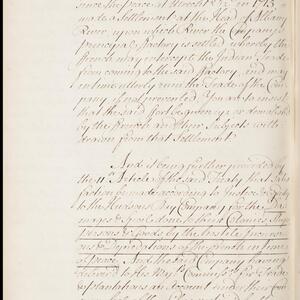 since the Peace at Utrecht in 1713,
made a Settlement at the Head of Albany
River, upon which River the Company's
principal Factory is settled whereby the
French may intercept the Indian Trade
from coming to the said Factory, and may
in time utterly ruin the Trade of the Com
pany if not prevented. You are to insist
that the said fort be given up or demolished
by the French and their Subjects with
drawn from that Settlement.
And it being further provided by
the 11th Article of the said Treaty that Satis
faction be made according to Justice & Equity
to the Hudsons Bay Company for the Da
mages & Spoil done to their Colonies, Ships
persons & Goods by the hostile Incursi
ons & Depredations of the French in time
of peace. And the said Company having
delivered to His Maj.ts Commiss.rs for Trade
& plantations an account under their Com